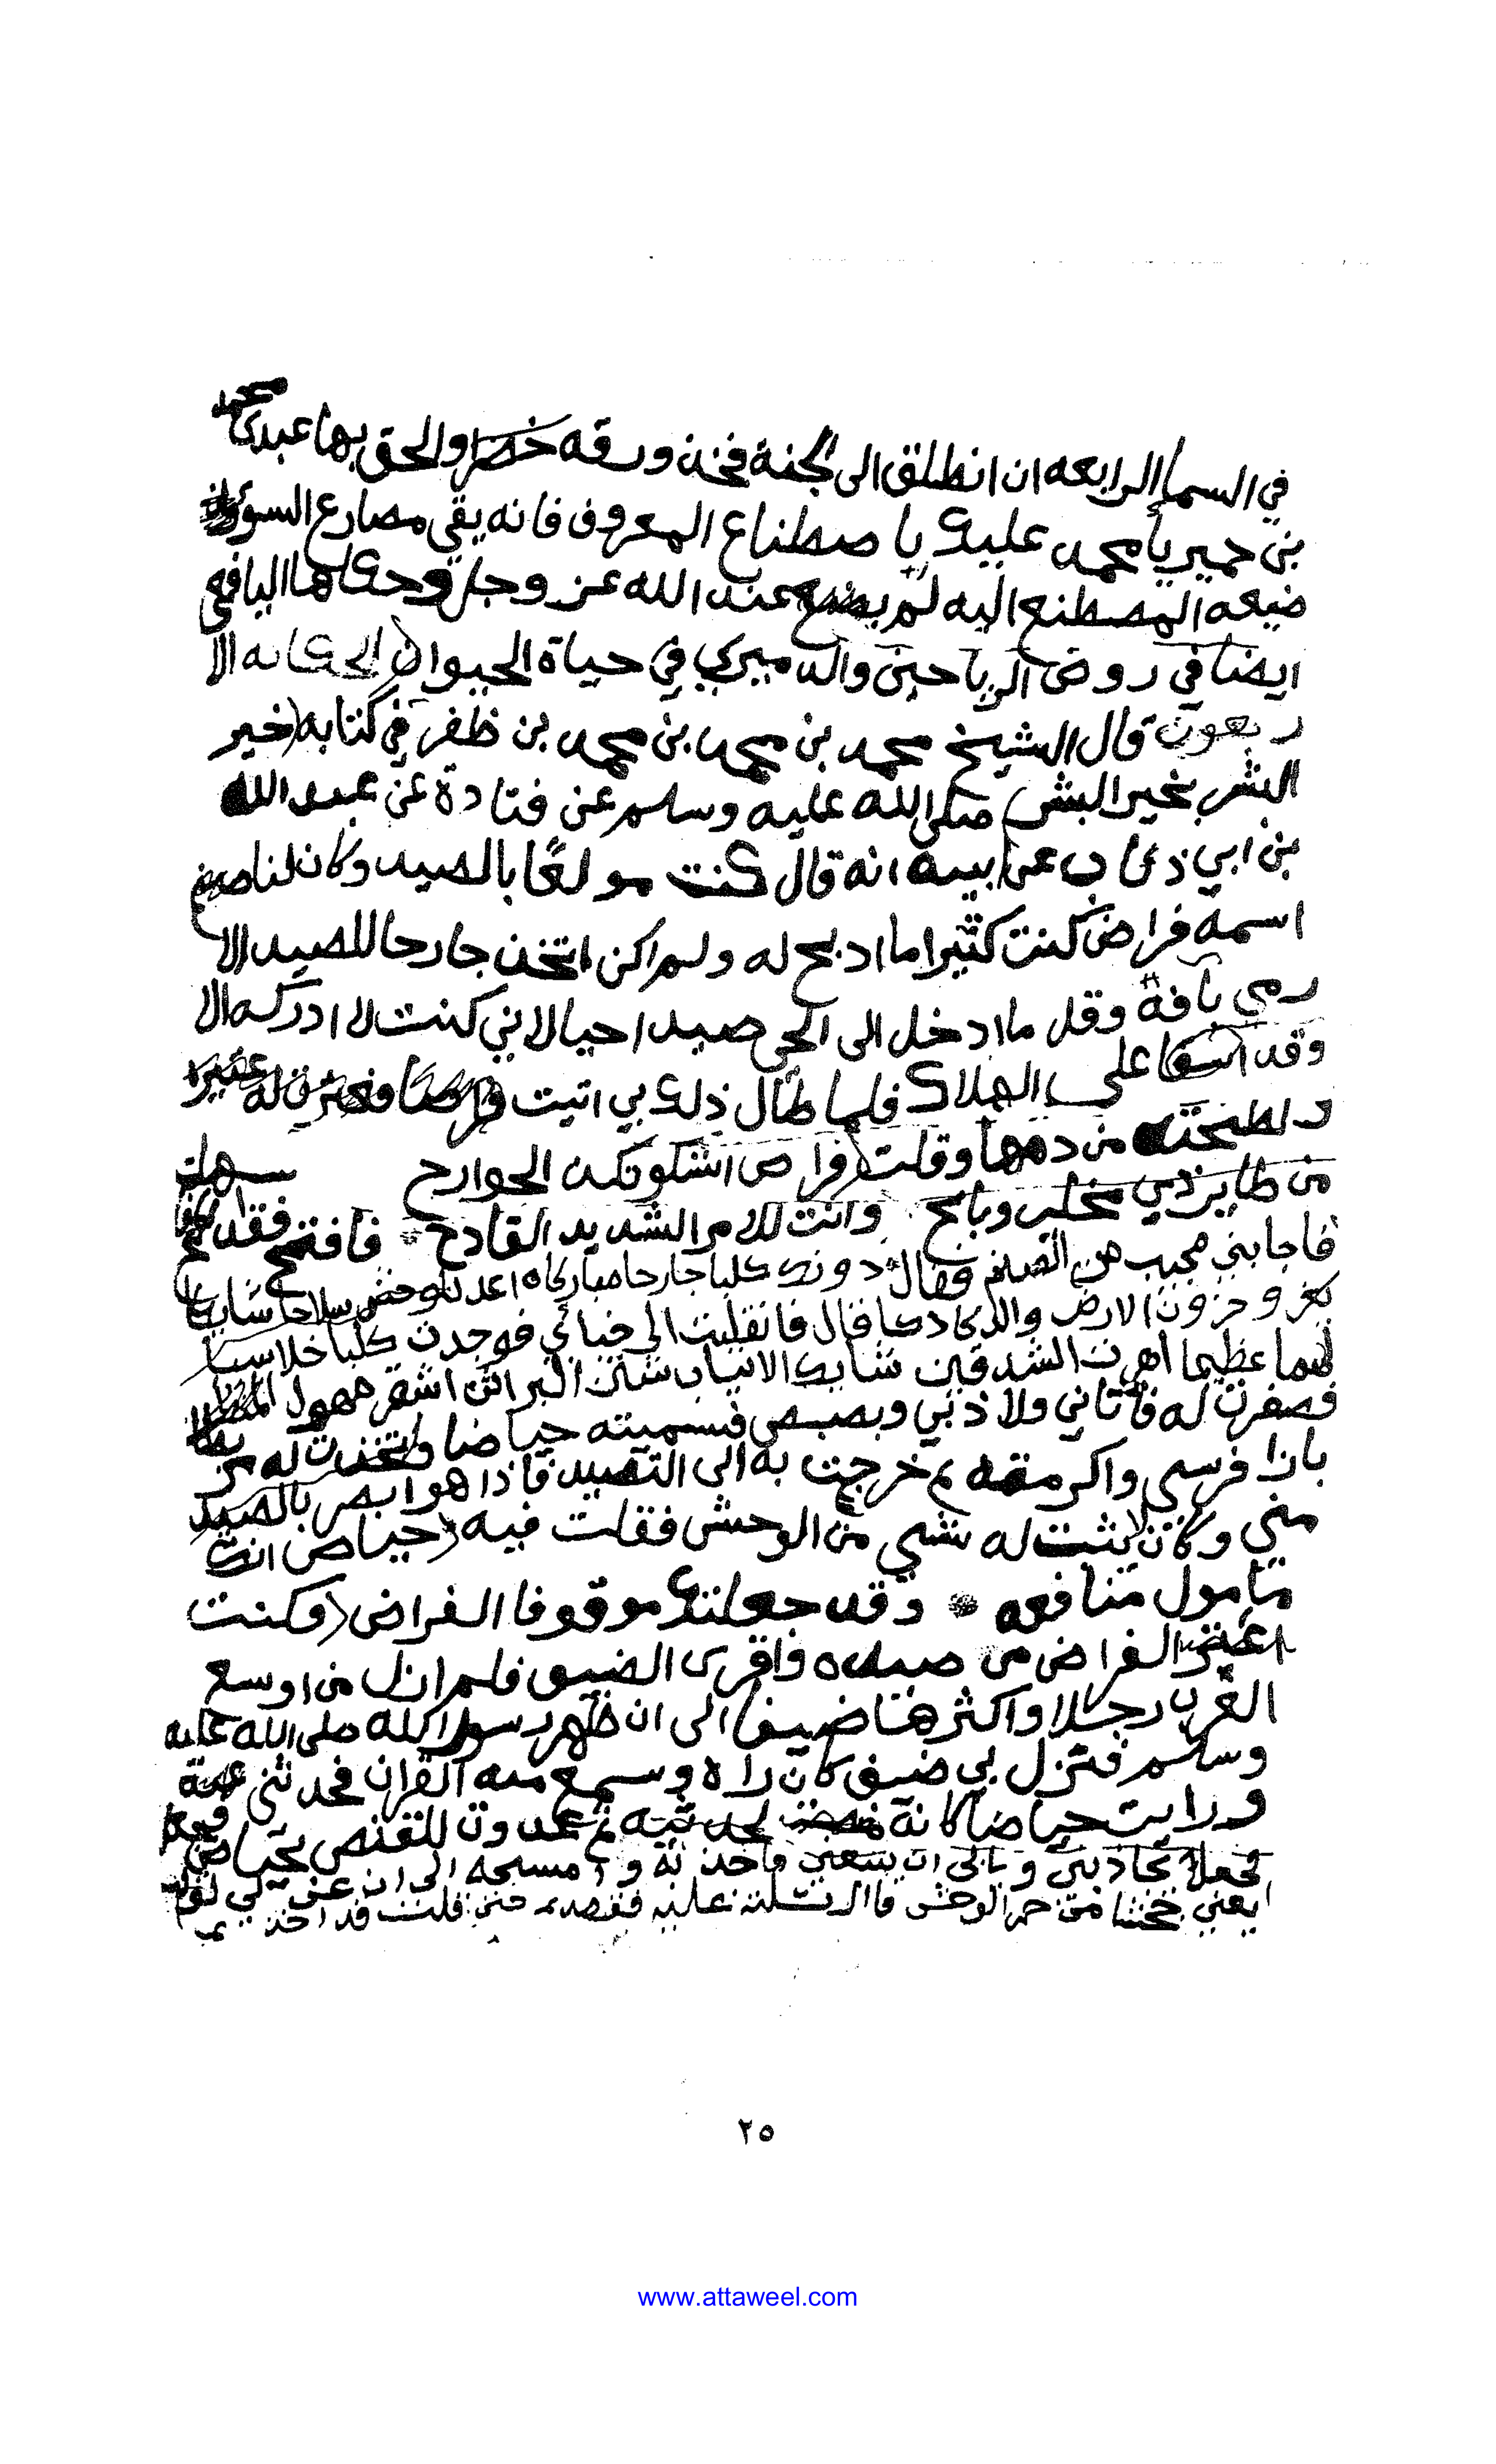 في السما الرابعه ان انطلق الى الجنة فخذ ورقه خضرا والحق بها عبدي محمد
بن حمير يا محمد عليك باصطناع المعروف فانه يقي مصارع السوء
ضيعه المصطنع اليه لم يضع عند الله عز وجل وحكاها اليافعي
ايضا في روض الرياحين والدميري في حياة الحيوان الحكايه الا
ربعون قال الشيخ محمد بن محمد بن محمد بن ظفر في كتابه (خير
البشر بخير البشر) صلى الله عليه وسلم عن قتادة عن عبد الله
بن ابي ذباب عن ابيه انه قال كنت مولعًا بالصيد وكان لنا صنم
اسمه فراض كنت كثيرا ما اذبح له ولم اكن اتخذ جارحا للصيد الا
رمي بآفة وقل ما ادخل الى الحي صيدا حيا لاني كنت لا ادركه الا
وقد اشفا على الهلاك فلما طال ذلك بي اتيت فراضا فعترت له عتيره
ولطخته من دمها وقلت (فراص اشكو نكد الجوارح
من طاير ذي مخلب ونابح وانت للامر الشديد القادح * فافتح فقد
فاجابني مجيب من الصنم فقال دونك كلبا جارحا مباركا اعد للوحش سلاحا شابكا
يغر وحزون الارض والدكادكا قال فانقلبت الى خبائي فوجدت كلبا خلاسيا
بهما عظيما اهرت الشدقين شابك الانياب شثن البراثن اشعر مهول المنظر
فصفرت له فاتاني ولاذ بي وبصبص فسميته حياضا واتخذت له مر
بازا فرسي واكرمته ثم خرجت به الى التصيد فاذا هو ابصر بالصيد
مني وكان لا يثبت له شي من الوحش فقلت فيه (حياص انك
مامول منافعه * وقد جعلتك موقوفا الفراض (فكنت
اعتر الفراض من صيده واقري الضيف فلم ازل من اوسع
العرب رحلا واكثرها ضيفا الى ان ظهر رسول الله صلى الله عليه
وسلم فنزل بي ضيف كان راه وسمع منه القران فحدثني عنه
ورايت حياضا كانه ينصت لحديثه ثم غدوت للقنص بحياض
فجعل يجاذبني ويابى ان يتبعني فاخذته و امسحه الى ان عن لي تولب
ايعني جحشا من حمر الوحش فارسلته عليه فقصده حتى قلت قد اخذه
٢٥
www.attaweel.com